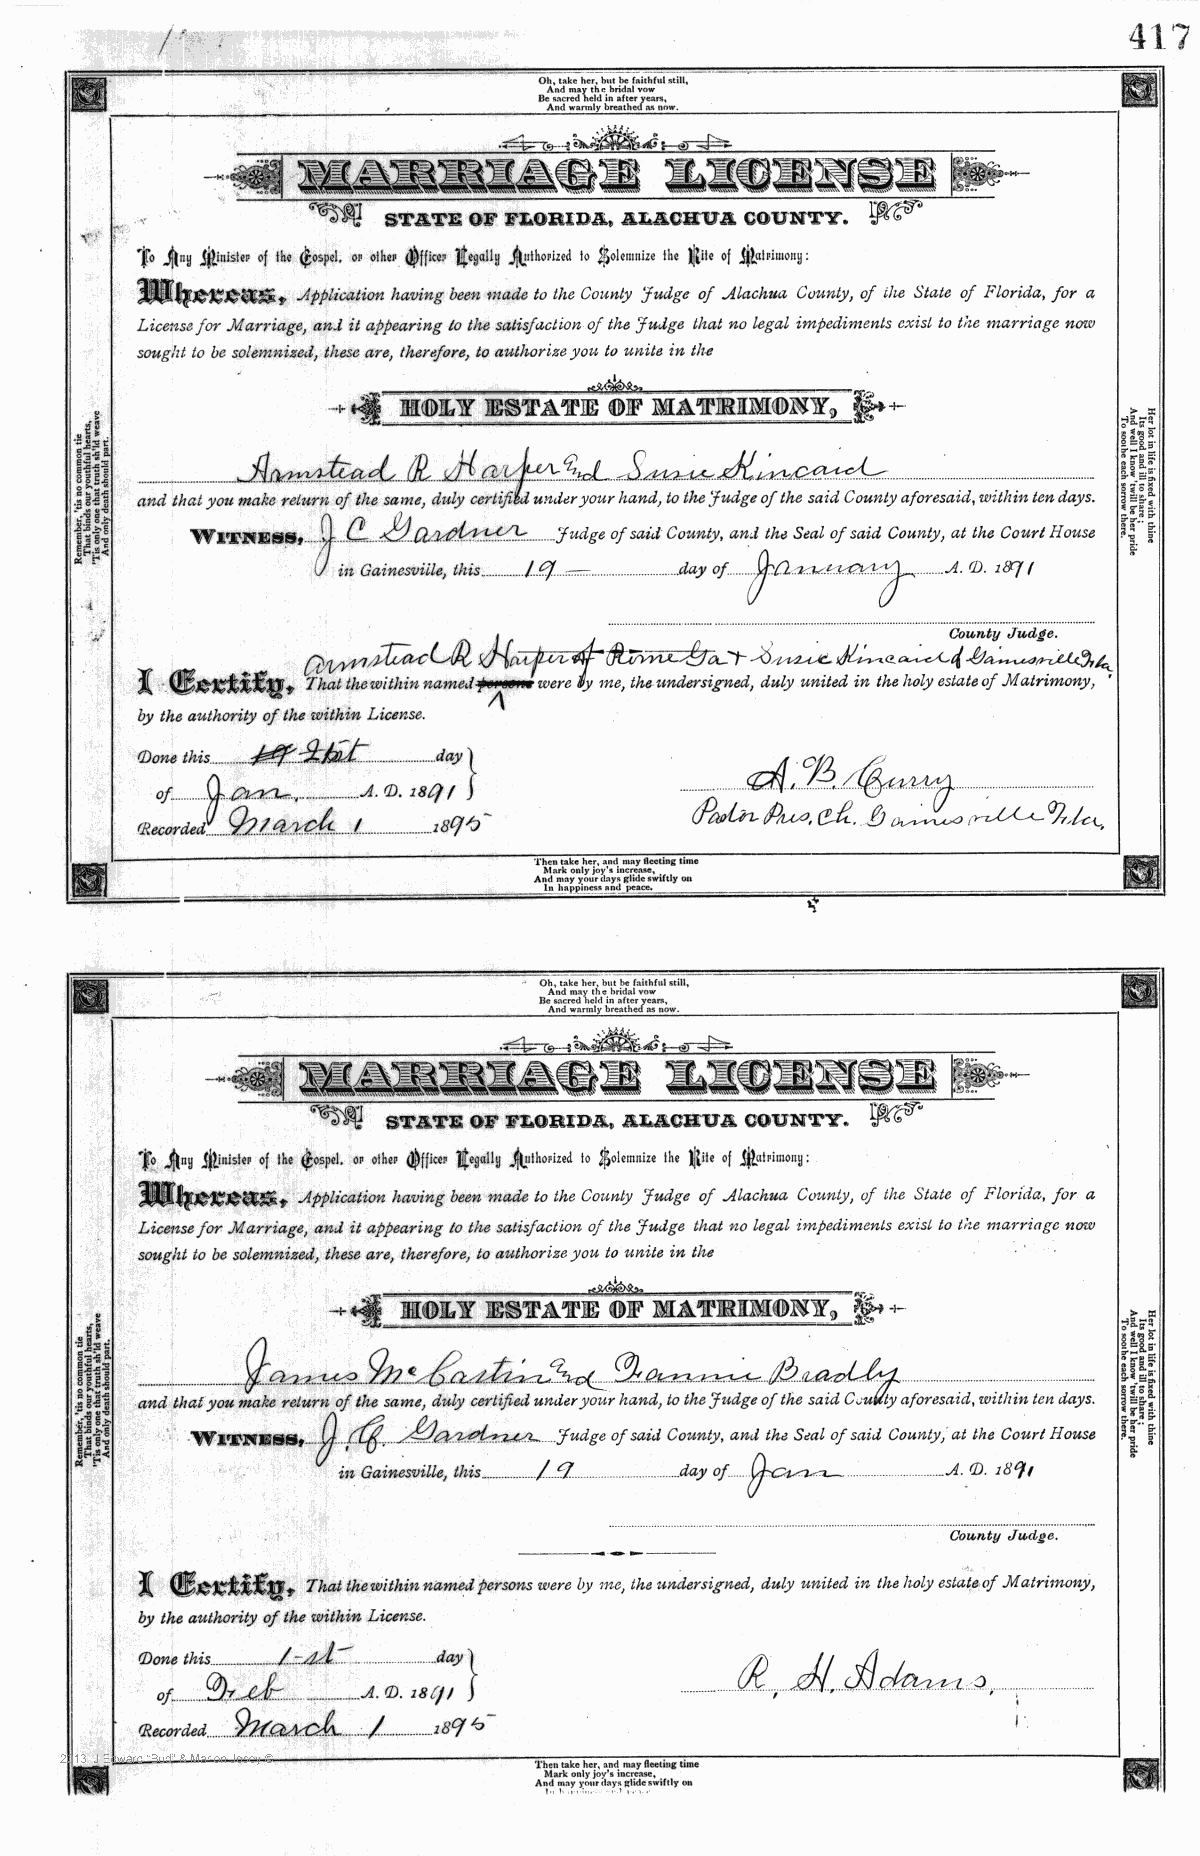 417
Oh, take her, but be faithful still,
And may the bridal vow
Be sacred held in after years,
And warmly breathed as now.
MARRIAGE LICENSE
STATE OF FLORIDA, ALACHUA COUNTY.
To Any Minister of the Gospel, or other Officer Legally Authorized to Solemnize the Rite of Matrimony:
Whereas, Application having been made to the County Judge of Alachua County, of the State of Florida, for a
License for Marriage, and it appearing to the satisfaction of the Judge that no legal impediments exist to the marriage now
sought to be solemnized, these are, therefore, to authorize you to unite in the
HOLY ESTATE OF MATRIMONY,
Armstead R Harper and Susie Kincaid
and that you make return of the same, duly certified under your hand, to the Judge of the said County aforesaid, within ten days.
WITNESS, J C Gardner Judge of said County, and the Seal of said County, at the Court House
in Gainesville, this 19 — day of January A. D. 1891
County Judge.
Armstead R Harper of Rome Ga + Susie Kincaid of Gainesville Fla.
I Certify, That the within named persons were by me, the undersigned, duly united in the holy estate of Matrimony,
by the authority of the within License.
Done this 19 21st day
of Jan. A. D. 1891
A. B. Curry
Recorded March 1 1895
Pastor Pres. Ch. Gainesville Fla.
Then take her, and may fleeting time
Mark only joy's increase,
And may your days glide swiftly on
In happiness and peace.
Remember, 'tis no common tie
That binds our youthful hearts,
'Tis only one that truth sh'ld weave
And only death should part.
Her lot in life is fixed with thine
Its good and ill to share;
And well I know 'twill be her pride
To soothe each sorrow there.
Oh, take her, but be faithful still,
And may the bridal vow
Be sacred held in after years,
And warmly breathed as now.
MARRIAGE LICENSE
STATE OF FLORIDA, ALACHUA COUNTY.
To Any Minister of the Gospel, or other Officer Legally Authorized to Solemnize the Rite of Matrimony:
Whereas, Application having been made to the County Judge of Alachua County, of the State of Florida, for a
License for Marriage, and it appearing to the satisfaction of the Judge that no legal impediments exist to the marriage now
sought to be solemnized, these are, therefore, to authorize you to unite in the
HOLY ESTATE OF MATRIMONY,
James McCastin and Fannie Bradly
and that you make return of the same, duly certified under your hand, to the Judge of the said County aforesaid, within ten days.
WITNESS, J. C. Gardner Judge of said County, and the Seal of said County, at the Court House
in Gainesville, this 19 day of Jan A. D. 1891
County Judge.
I Certify, That the within named persons were by me, the undersigned, duly united in the holy estate of Matrimony,
by the authority of the within License.
Done this 1-st day
of Feb A. D. 1891
R. H. Adams.
Recorded March 1 1895
Then take her, and may fleeting time
Mark only joy's increase,
And may your days glide swiftly on
Remember, 'tis no common tie
That binds our youthful hearts,
'Tis only one that truth sh'ld weave
And only death should part.
Her lot in life is fixed with thine
Its good and ill to share;
And well I know 'twill be her pride
To soothe each sorrow there.
J Edward "Bud" &